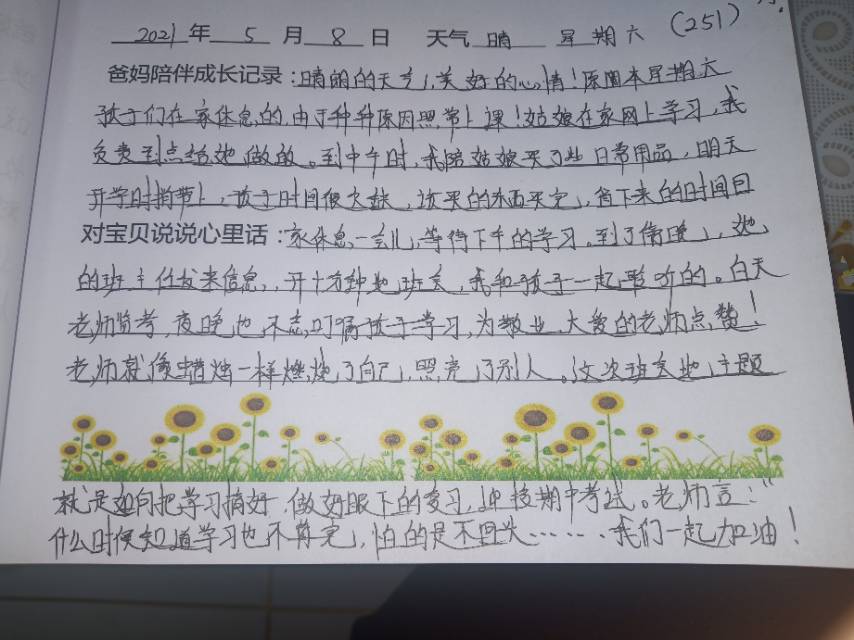 2021年 5 月 8 日 天气 晴 星期六 (251)
爸妈陪伴成长记录:晴朗的天气,美好的心情!原因本星期六
孩子们在家休息的,由于种种原因照常上课!姑娘在家网上学习,我
负责到点给她做的。到中午时,我陪姑娘买了些日常用品,明天
开学时捎带上,孩子时间很欠缺,该买的东西买完,省下来的时间回
对宝贝说说心里话:家休息一会儿,等待下午的学习。到了傍晚,她
的班主任发来信息,开十方钟地班会,我和孩子一起聆听的。白天
老师监考,夜晚也不忘叮嘱孩子学习,为敬业、大爱的老师点赞!
老师就像蜡烛一样燃烧了自己,照亮了别人。这次班会地主题
就是如何把学习搞好,做好眼下的复习,迎接期中考试。老师言:“
什么时候知道学习也不算完,怕的是不回头……我们一起加油!